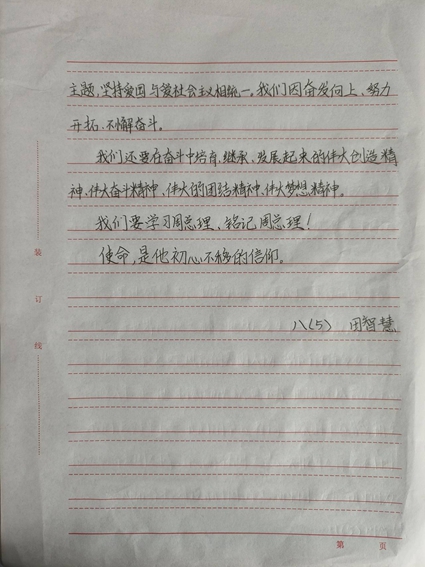 主题,坚持爱国与爱社会主义相统一。我们因奋发向上、努力
开拓、不懈奋斗。
我们还要在奋斗中培育、继承、发展起来的伟大创造精
神、伟大奋斗精神、伟大的团结精神、伟大梦想精神。
我们要学习周总理、铭记周总理!
使命,是他初心不移的信仰。
八(5) 田智慧
装
订
线
第 页